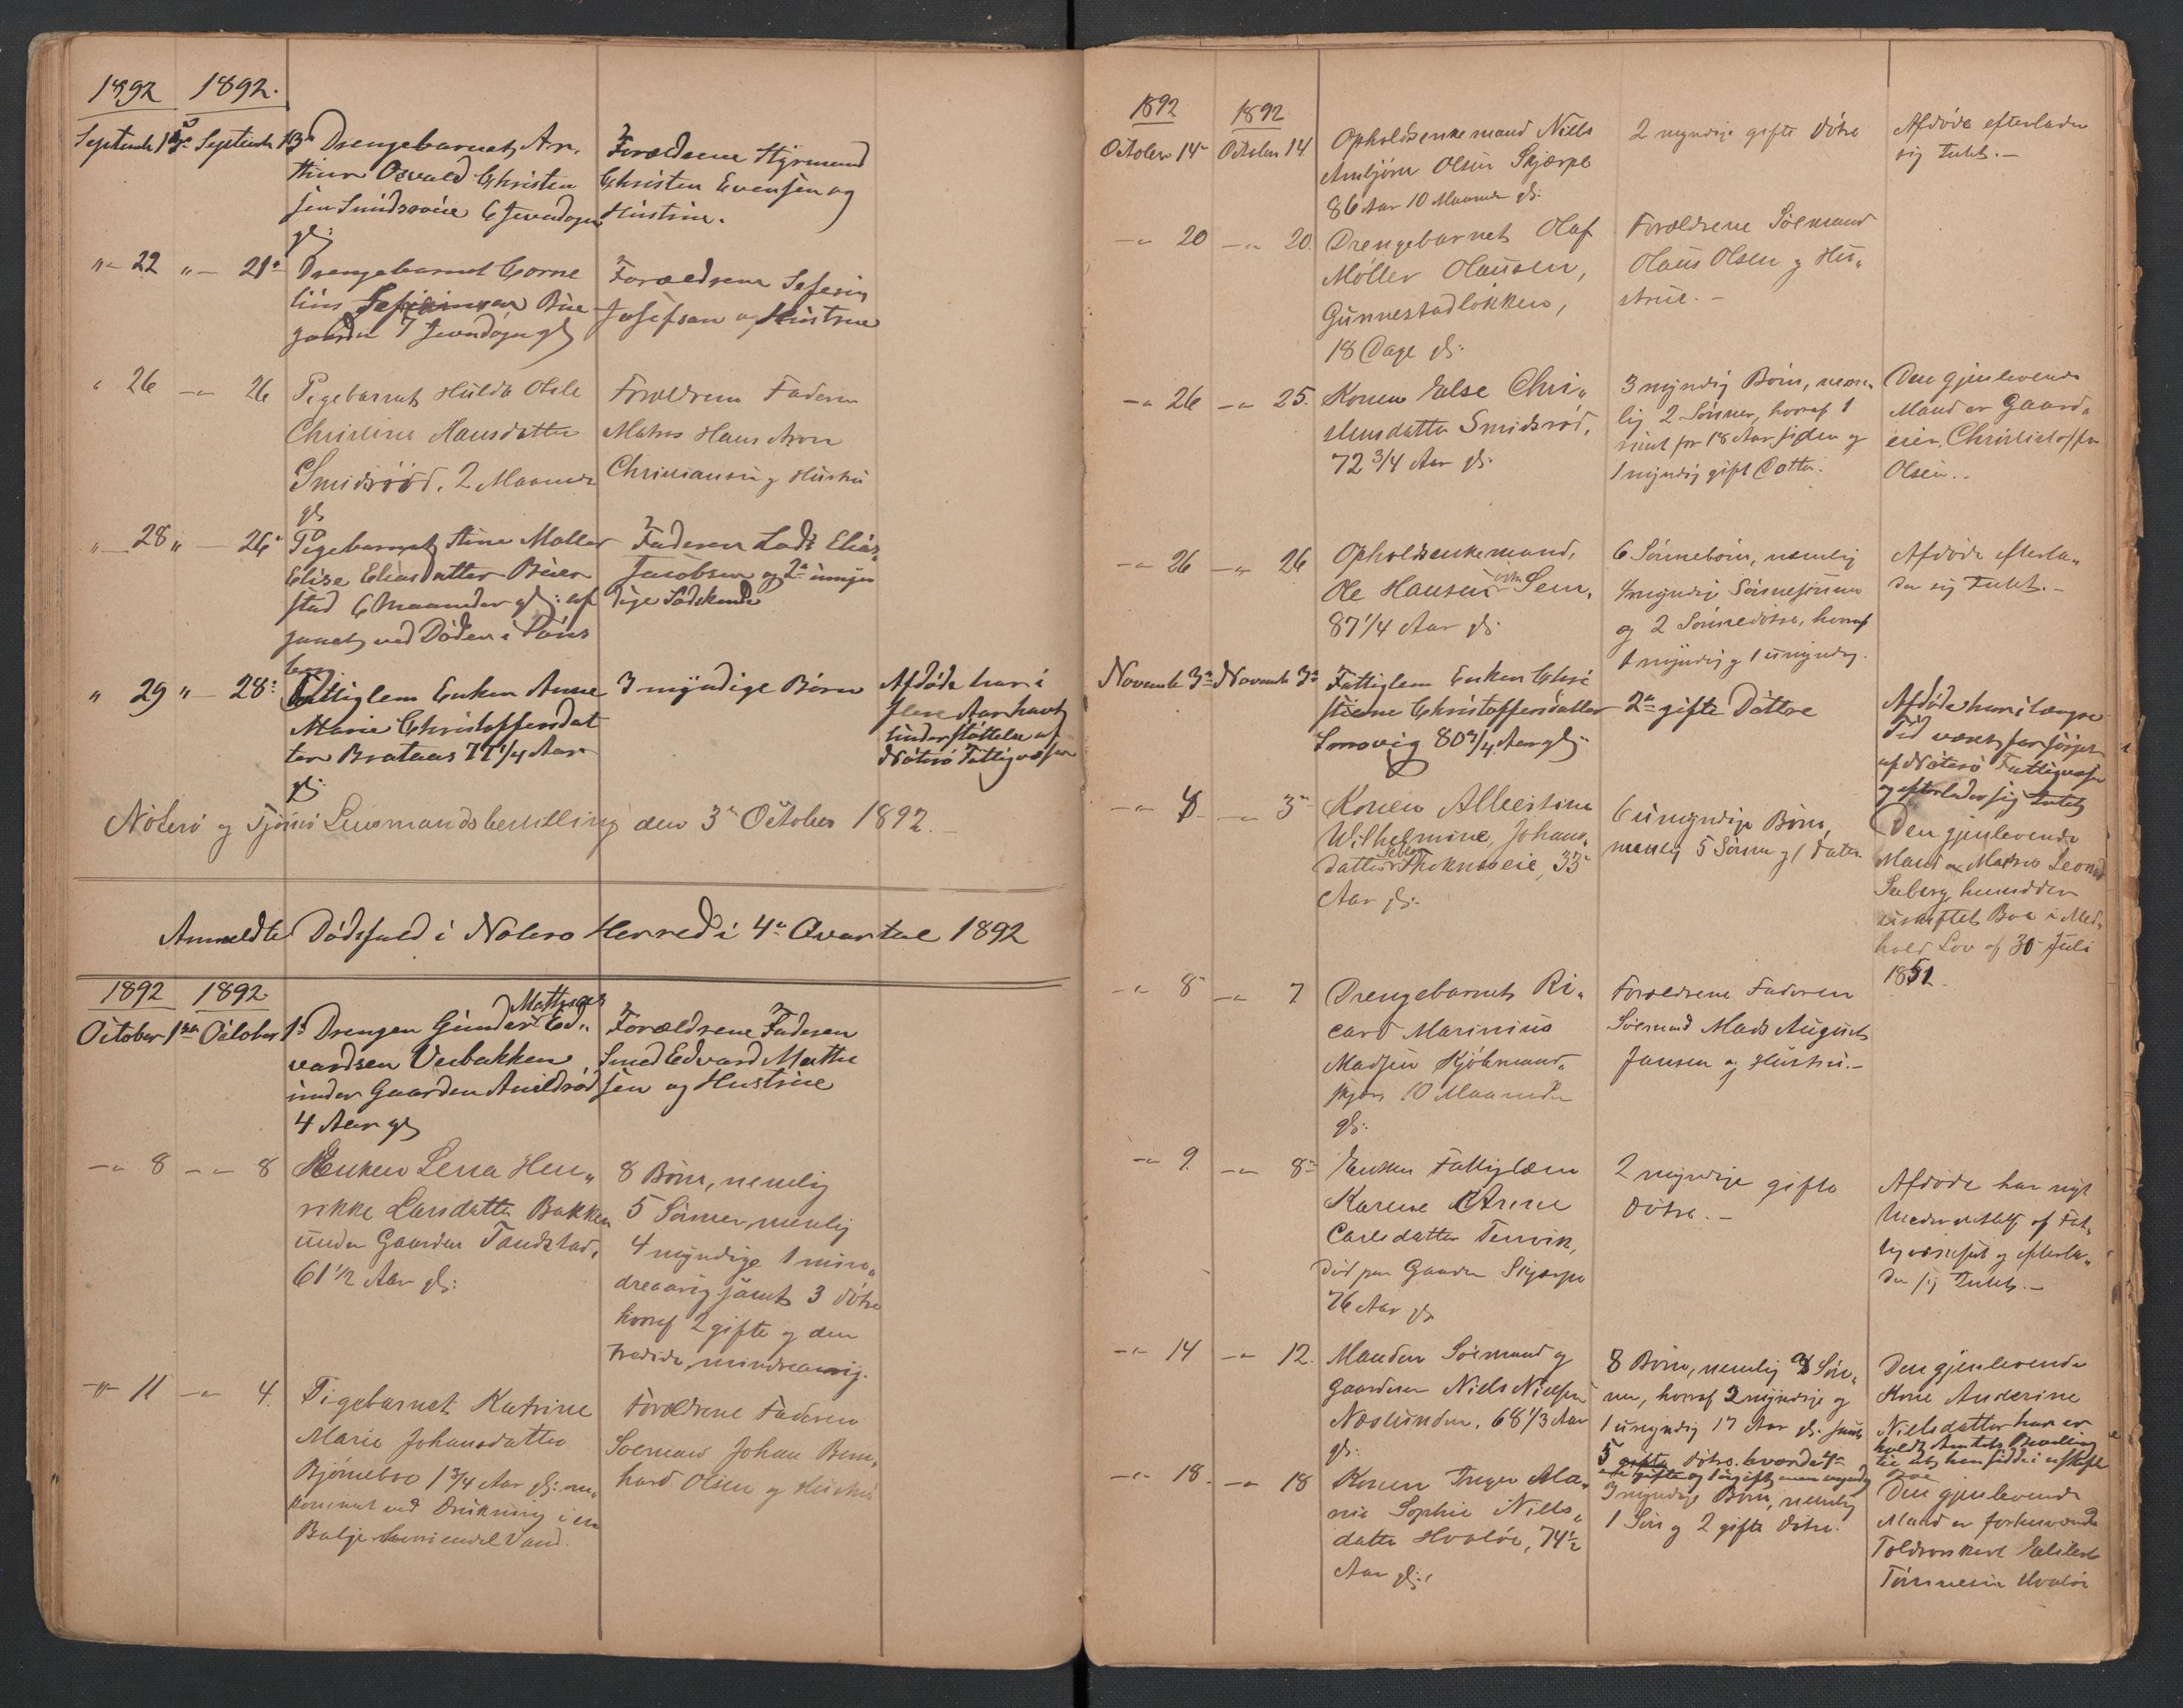 1892 1892.
Septemb 15de Septemb 13de Drengebarnet Ar.
thur Osvald Christen
sen Smidsroie 6 Fjerndøgn
gl:
Forældrene Styrmand
Christen Evensen og
Hustrue.
"- 22 "- 21de Drengebarnet Corne
lius Sefesinsen Bue
gaarden 7 Fjerndøgn gl
Forældrene Sefesin
Josefsen og Hustrue
" 26 -"- 26 Pigebarnet Hulda Otile
Christine Hansdatter
Smidsrød. 2 Maaneder
gl
Forældrene Faderen
Matros Hans Aron
Christiansen og Hustru
"- 28 "- 26de Pigebarnet Stine Mollar
Elise Eliasdatter Buer
stad 6 Maaneder gl: af
gaaet ved Døden i Tøns
berg
Faderen Lods Elias
Jacobsen og 2de umyn
dige Sødskende
" 29 "- 28de Fattiglem Enken Anne
Marie Christoffersdat
ter Brataas 77 1/4 Aar
gl:
3 myndige Børn
Afdøde har i
flere Aar havt
Understøttelse af
Nøterø Fattigvæsen
Nøterø og Tjømø Lensmandsbestilling den 3de October 1892.
Anmeldte Dødsfald i Nøterø Herred i 4de Qvartal 1892
1892 1892
October 1ste October 1ste Drengen Gunder Mathias Ed„
vardsen Vebakken
under Gaarden Arildsrød
4 Aar gl
Forældrene Faderen
Smed Edvard Mathi
sen og Hustrue
-"- 8 -"- 8 Enken Lena Hen„
rikke Larsdatter Bakken
under Gaarden Tandstad,
61 1/2 Aar gl:
8 Børn, nemlig
5 Sønner, nemlig
4 myndige 1 min„
dreaarig samt 3 Døtre
hvoraf 2 gifte og den
tredide, mindreaarig.
-"- 11 -"- 4. Pigebarnet Katrine
Marie Johansdatter
Bjørnebo 1 3/4 Aar gl: om„
kommet ved Drukning i en
Balje Vand.
Forældrene Faderen
Sømand Johan Bern„
hard Olsen og Hustru
1892 1892
October 14de October 14 Opholdsenkemand Niels
Ambjørn Olsen Skjærpe
86 Aar 10 Maaneder gl:
2 myndige gifte Døtre
Afdøde efterlader
sig Intet.-
-"- 20 -"- 20. Drengebarnet Olaf
Møller Olausen,
Gunnestadløkken,
18 Dage gl:
Forældrene Sømand
Olaus Olsen og Hu„
strue.-
-"- 26 -"- 25. Konen Else Chri„
stensdatter Smidsrød,
72 3/4 Aar gl:
3 myndig Børn, nem„
lig 2 Sønner, hvoraf 1
rømt for 18 Aar siden og
1 myndig gift Datter.
Den gjenlevende
Mand er Gaard„
eier Christoffer
Olsen..
-"- 26 -"- 26 Opholdsenkemand,
Ole Hansen Sem,
87 1/4 Aar gl:
6 Sønnebørn, nemlig
4 myndige Sønnesønner
og 2 Sønnedøtre, hvoraf
1 myndig og 1 umyndig.
Afdøde efterla„
der sig Intet.-
Novemb 3de Novemb 3de Fattiglem Enken Chri
stiane Christoffersdatter
Smovig 80 3/4 Aar gl:
2de gifte Døttre
Afdøde har i længre
Tid været forsørget
af Nøterø Fattigvæsen
og efterlader sig Intet
-"- 4 -"- 3de Konen Albertine
Wilhelmine, Johans„
datter Seberg Theknæseie, 35
Aar gl:
6 umyndige Børn,
nemlig 5 Sønner og 1 Datter
Den gjenlevende
Mand er Matros Leonard
Seeberg, hensidder
i uskiftet Bo i Med„
hold Lov af 30 Juli
1851.
-"- 8de -"- 7 Drengebarnet Ri„
card Marinius
Madsen Kjøbmand„
skjær, 10 Maaneder
gl:
Forældrene Faderen
Sømand Mads August
Jansen og Hustru.-
-"- 9. -"- 8de Enken Fattiglem
Karine Arene
Carlsdatter Tenvik,
død paa Gaarden Skjærpe
76 Aar gl:
2 myndige gifte
Døtre.-
Afdøde har nydt
Understøttelse af Fat„
tigvæsenet og efterla„
der sig Intet.-
-"- 14 -"- 12. Manden Sømand og
Gaardeier Niels Nielsen
Næslunden, 68 1/3 Aar
gl:
8 Børn, nemlig 3 Søn„
ner, hvoraf 2 myndige og
1 umyndig 17 Aar gl: samt
5 gifte Døtre. hvoraf 4de
ere gifte og 1 ugift, men myndig
Den gjenlevende
Kone Anderine
Nielsdatter har er
holdt Amtets Bevilling
til at hensidde i uskiftet
Boe
-"- 18. -"- 18 Konen Inger Ma„
rie Sophie Niels„
datter Hvaløe, 74 1/2
Aar gl:
3 myndige Børn, nemlig
1 Søn og 2 gifte Døtre.
Den gjenlevende
Mand er forhenværende
Toldroerskarl Eilert
Tønnesen Hvaløe